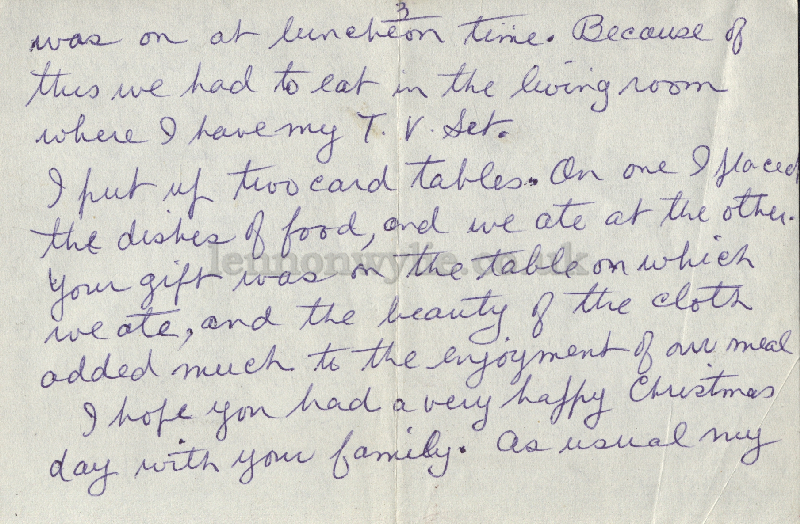 3
was on at luncheon time. Because of
this we had to eat in the living room
where I have my T. V. Set.
I put up two card tables. On one I placed
the dishes of food, and we ate at the other.
lennonwylie.co.uk
Your gift was on the table on which
we ate, and the beauty of the cloth
added much to the enjoyment of our meal
I hope you had a very happy Christmas
day with your family. As usual my